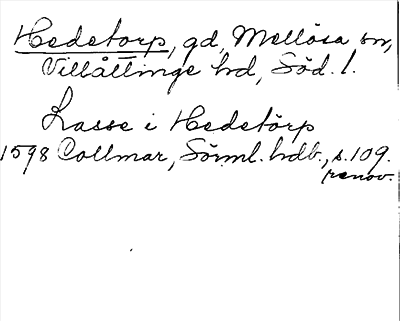 Hedetorp, gd, Mellösa sn,
Villåttinge hd, Söd. l.
Lasse i Hedetörp
1598 Collmar, Sörml. hdb., s. 109.
renov.